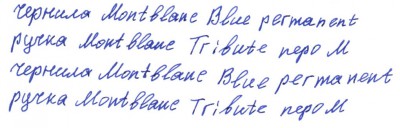 чернила Montblanc Blue permanent
ручка Montblanc Tribute перо M
чернила Montblanc Blue permanent
ручка Montblanc Tribute перо M